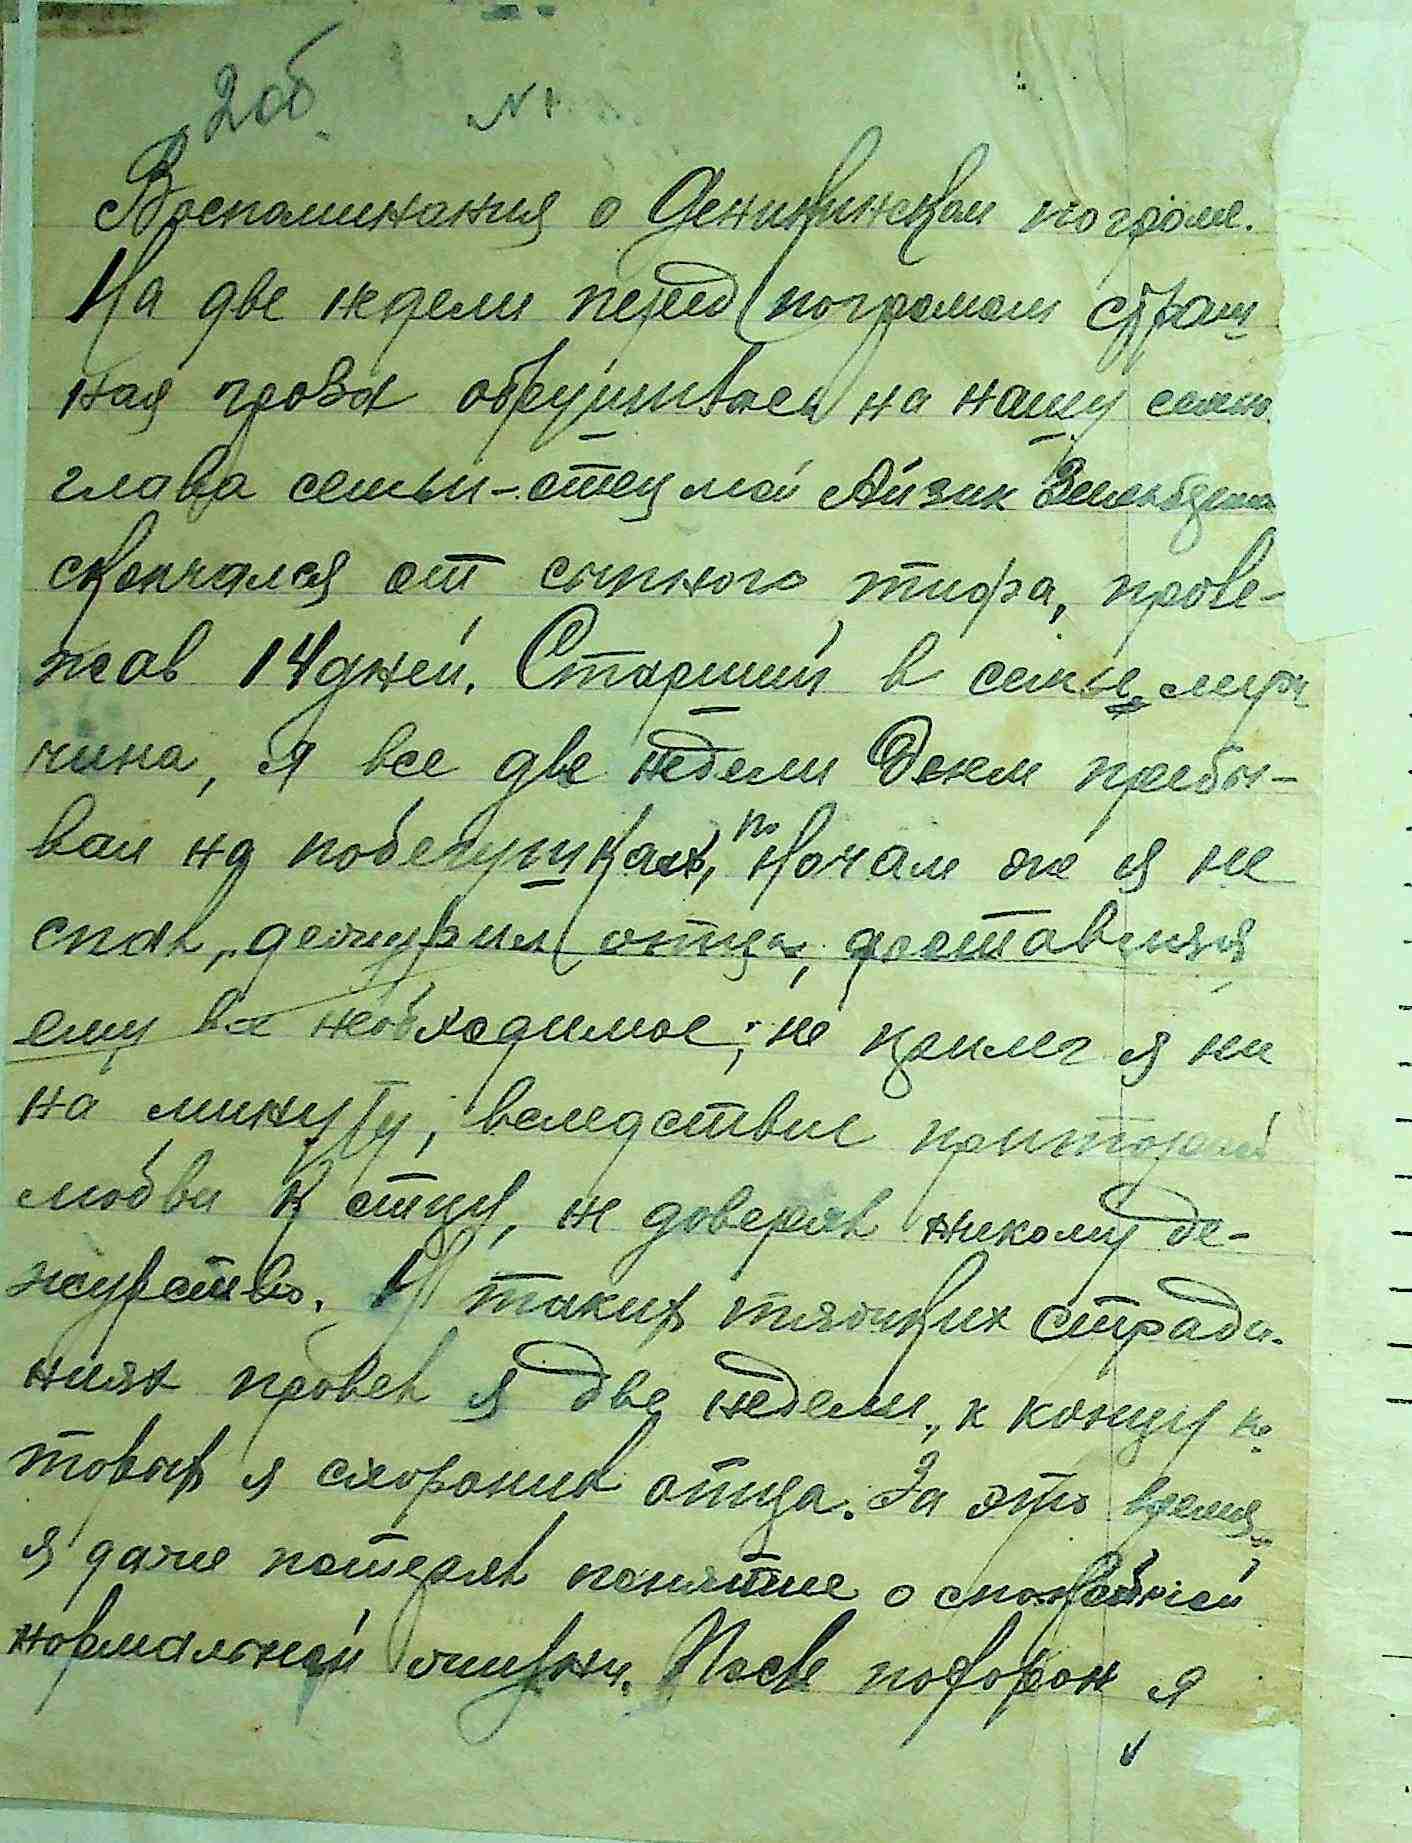 20б. №1
Воспоминания о Деникинском погроме.
На две недели перед погромом страш
ная гроза обрушилась на нашу семю
глава семьи-отец мой Айзик
скончался от сыпного тифа, прове-
жав 14 дней. Старший в семье муж
чина, я все две недели днем пребы-
вал на побегушках, по ночам же я не
спал, дежурил отца, доставляя
ему все необходимое; не прилег я ни
на минуту, вследствие
любви к отцу, не доверял никому де-
журство. В таких тяжких страда-
ниях провел я две недели, к концу ко
торых я схоронил отца. За это время
я даже потерял понятие о спокойной
нормальной жизни. После похорон я